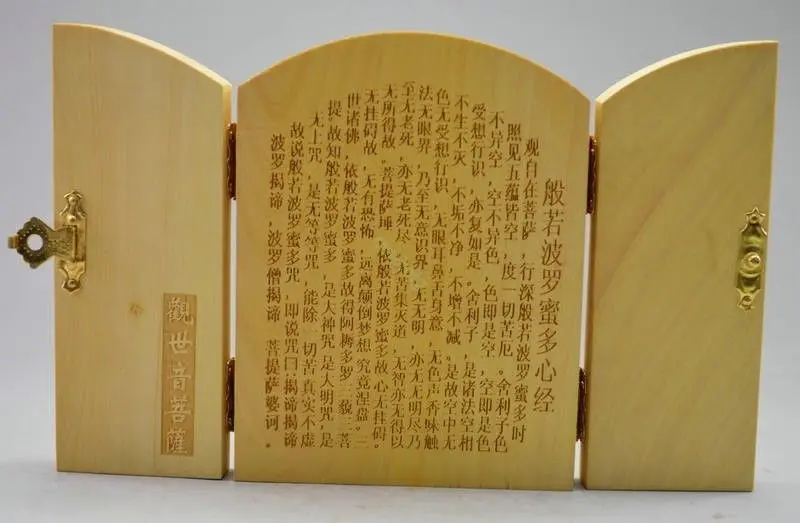 般若波罗蜜多心经
观自在菩萨，行深般若波罗蜜多时
照见五蕴皆空，度一切苦厄。舍利子色
不异空，空不异色，色即是空，空即是色
受想行识，亦复如是。舍利子，是诸法空相
不生不灭，不垢不净，不增不减。是故空中无
色无受想行识，无眼耳鼻舌身意，无色声香味触
法无眼界，乃至无意识界，无无明，亦无无明尽乃
至无老死，亦无老死尽。无苦集灭道，无智亦无得以
无所得故。菩提萨埵，依般若波罗蜜多故，心无挂碍。
无挂碍故，无有恐怖，远离颠倒梦想究竟涅盘。三
世诸佛，依般若波罗蜜多故得阿耨多罗三藐三菩
提。故知般若波罗蜜多，是大神咒是大明咒，是
无上咒，是无等等咒，能除一切苦真实不虚
故说般若波罗蜜多咒，即说咒曰揭谛揭谛
波罗揭谛，波罗僧揭谛 菩提萨婆诃。
觀世音菩薩